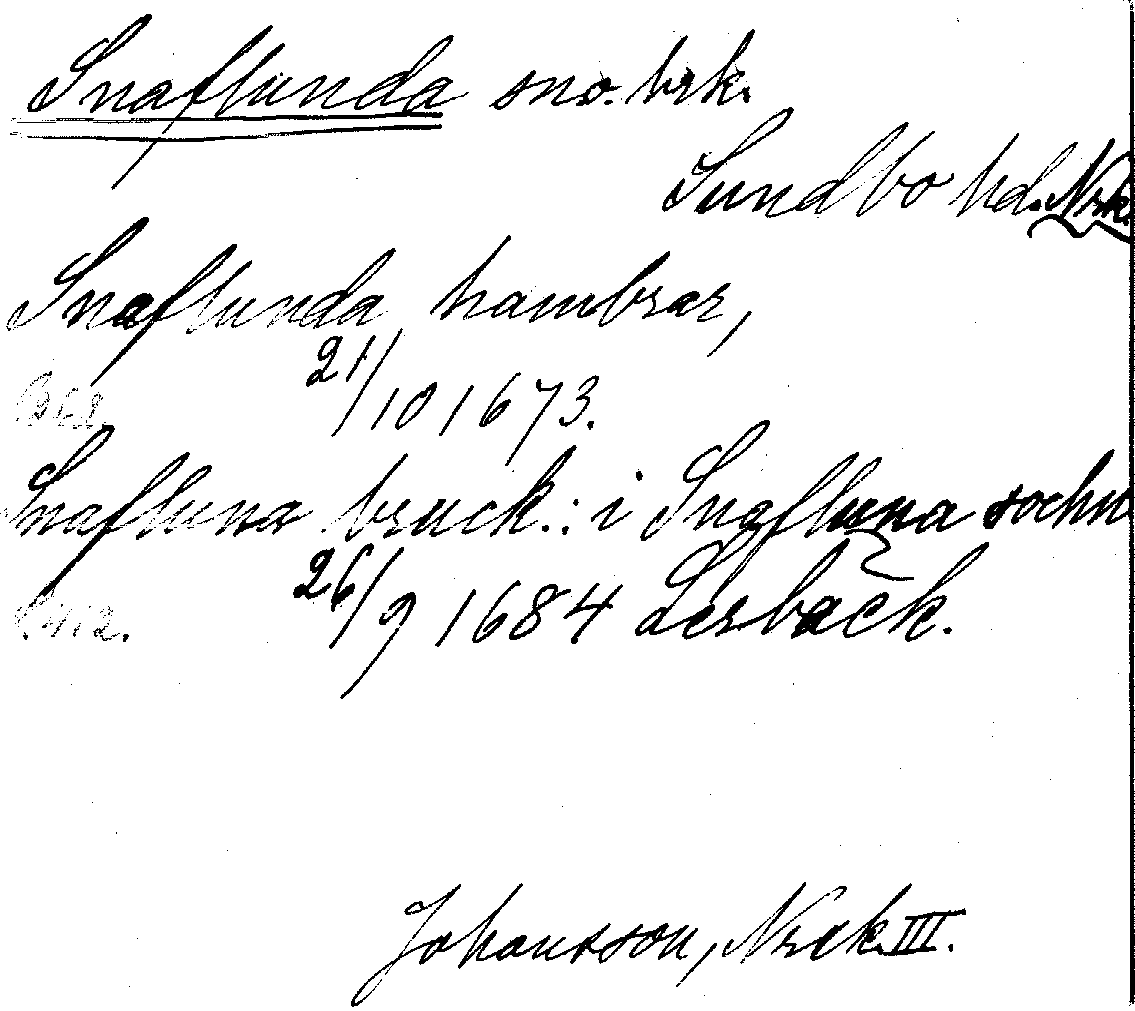 Snaflunda sno. brk.
Sundbo hd. Nrk.
Snaflunda hambrar,
21/10 1673.
Snafluna bruck.: i Snafluna sochn
26/9 1684 Lerbäck.
Johansson, Nrck. III.